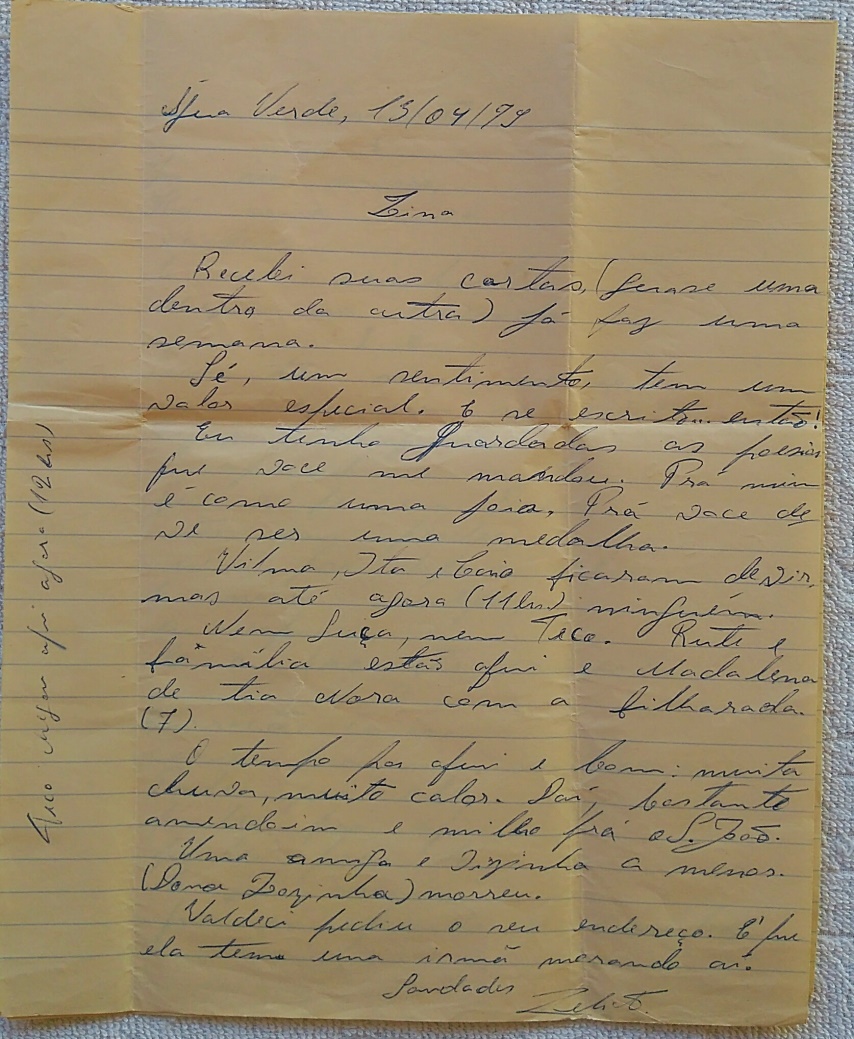 Água Verde, 13/04/99
Zina
Recebi suas cartas, (quase uma
dentro da outra) já faz uma
semana.
Sé, um sentimento, tem um
valor especial. E se escrito... então!
Eu tenho guardadas as poesias
que voce me mandou. Prá mim
é como uma joia. Prá voce de
ve ser uma medalha.
Vilma, Ita e Caio ficaram de vir,
mas até agora (11 hs) ninguém.
Nem Juça, nem Teco. Rute e
família estás aqui e Madalena
de tia Nora com a filharada.
(7).
O tempo por aqui e bom: muita
chuva, muito calor. Daí, bastante
amendoim e milho prá o S. João.
Uma amiga e vizinha a menos.
(Dona Zozinha) morreu.
Valdeci pediu o seu endereço. É que
ela tem uma irmã morando aí.
Saudades
Zelito.
Teco chegou aqui agora (12 hs)